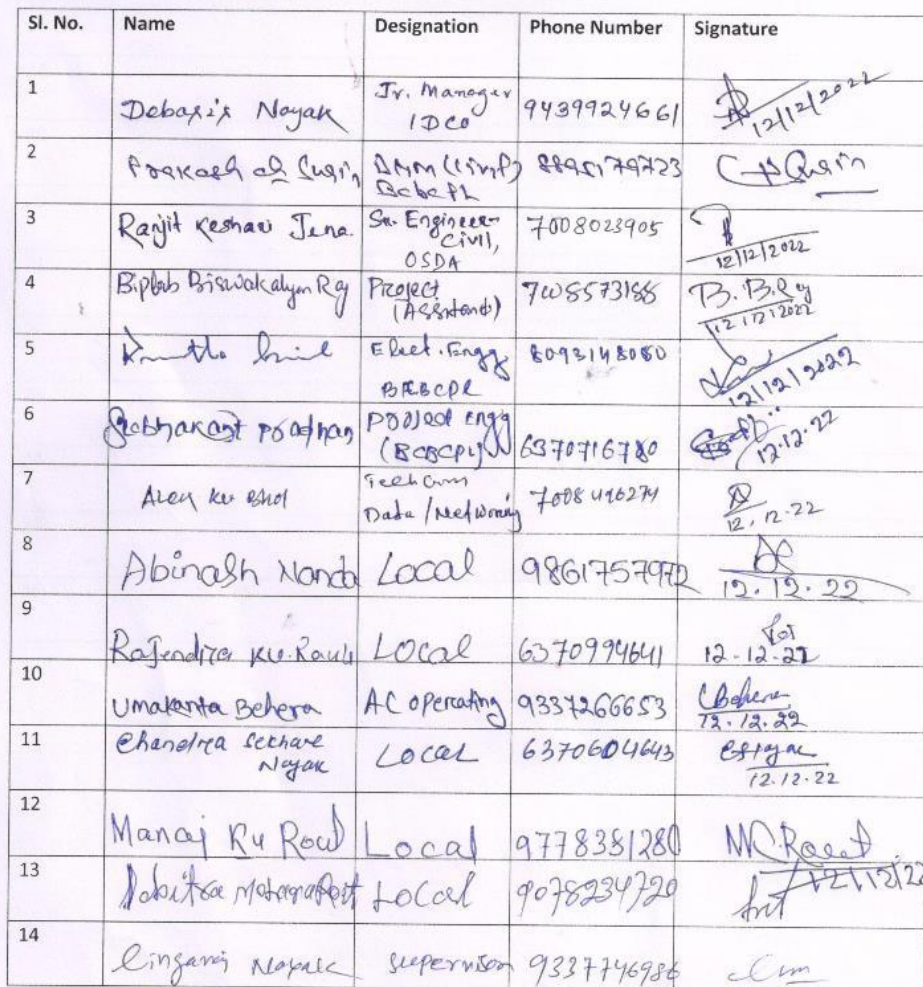 Sl. No. Name Designation Phone Number Signature
1 Debasis Nayak Jr. Manager IDCO 9439924661 12/12/2022
2 Prakash ch Swain 8895179723
3 Ranjit Keshari Jena. Sr. Engineer- Civil, OSDA 7008023905 12/12/2022
4 Biplab Biswakalyan Ray Project (Assistant) 7008573188 B. B. Ray 12/12/2022
5 Elect. Engg 8093148080 12/12/2022
6 Pradhan Project Engg (BCBCPL) 6370716780 12.12.22
7 Data / 7008416274 12.12.22
8 Abinash Nanda Local 9861757972 12.12.22
9 Rajendra Ku. Raut Local 6370994641 12-12-22
10 Umakanta Behera AC operating 9337266653 CBehera 12.12.22
11 Chandra Sekhar Nayak Local 6370604643 12.12.22
12 Manoj Ku Rout Local 9778381280 12/12/22
13 Local 9078234720
14 Nayak supervisor 9337746986